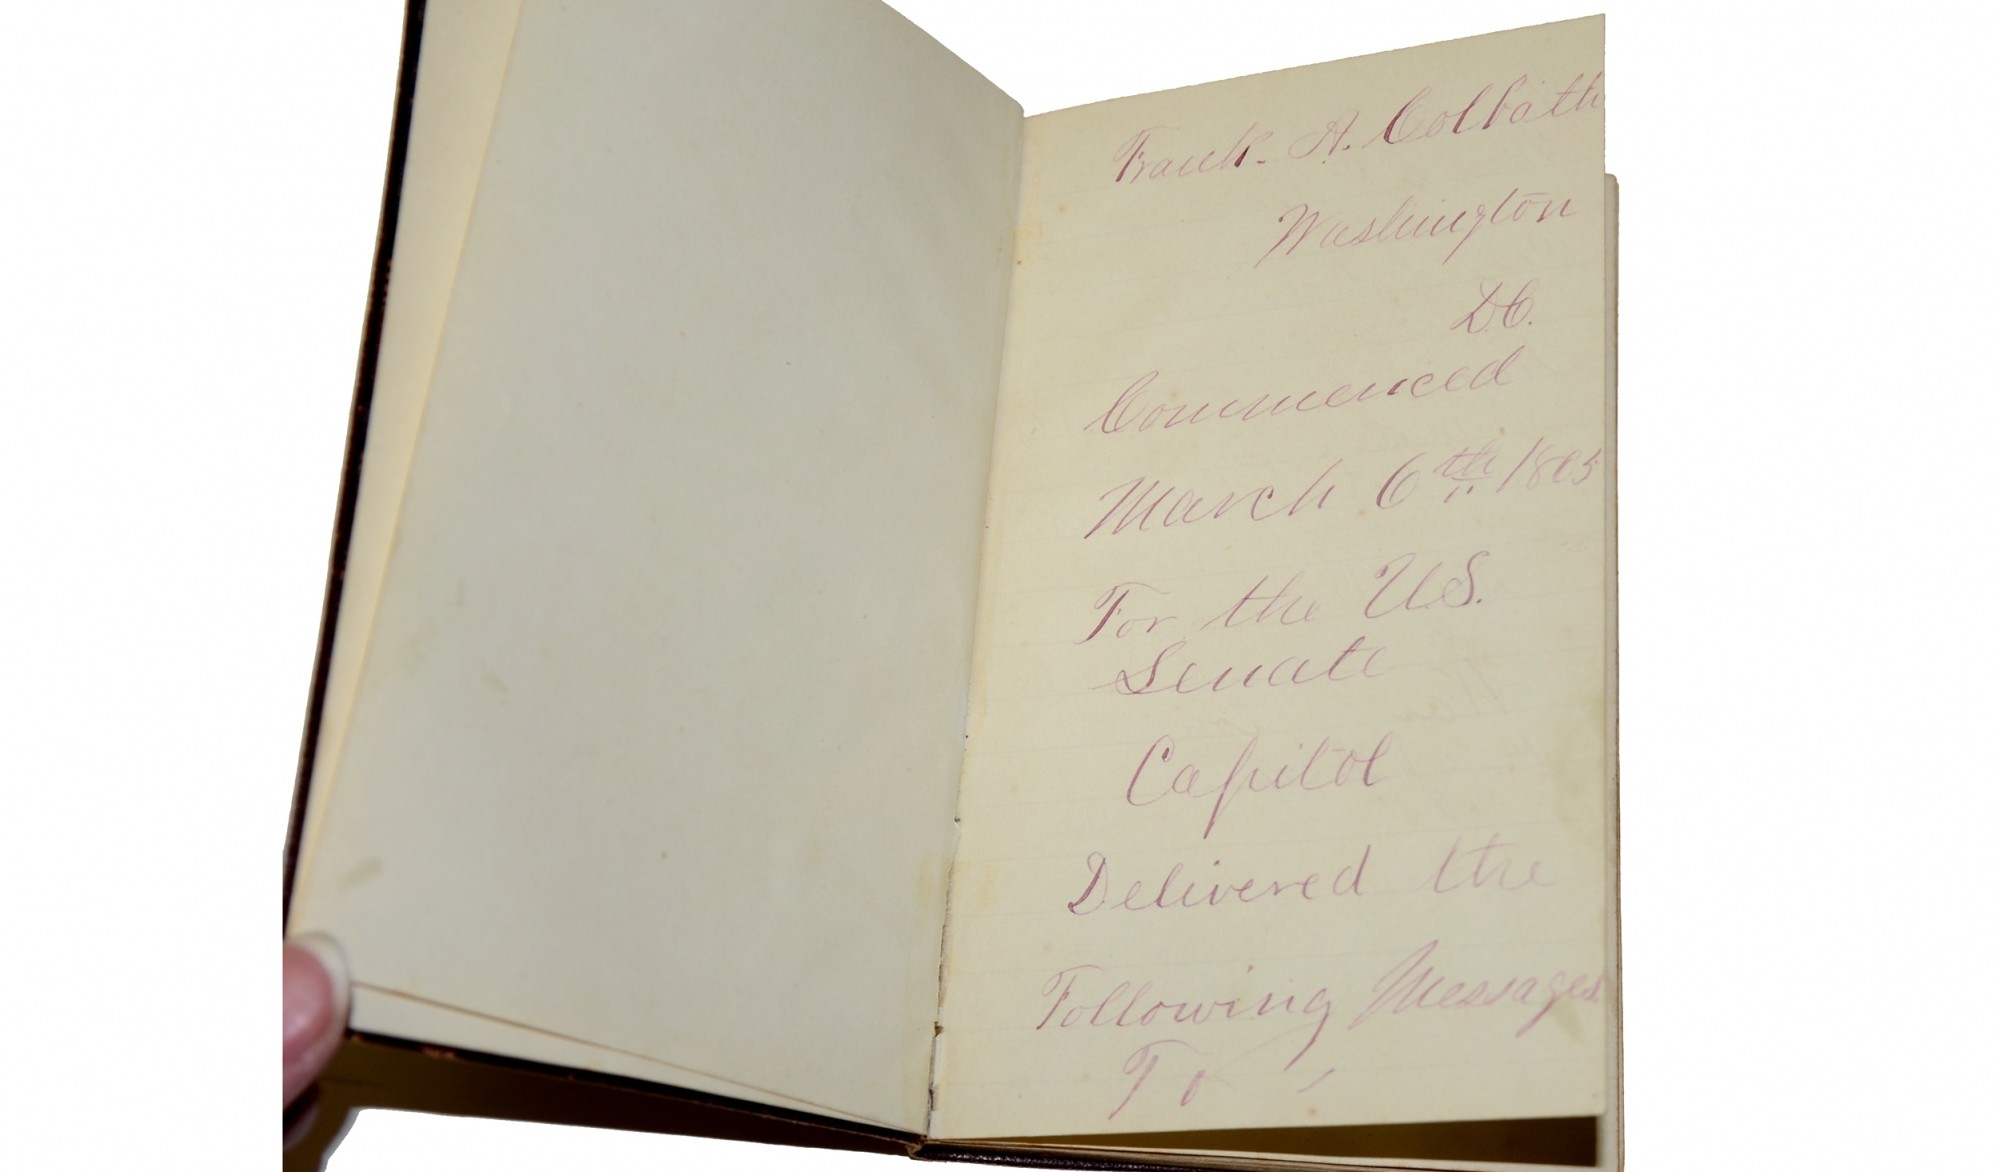 Frank. A. Colbath
Washington
D.C.
Commenced
March 6th
For the U.S.
Senate
Capitol
Delivered the
Following Messages
To